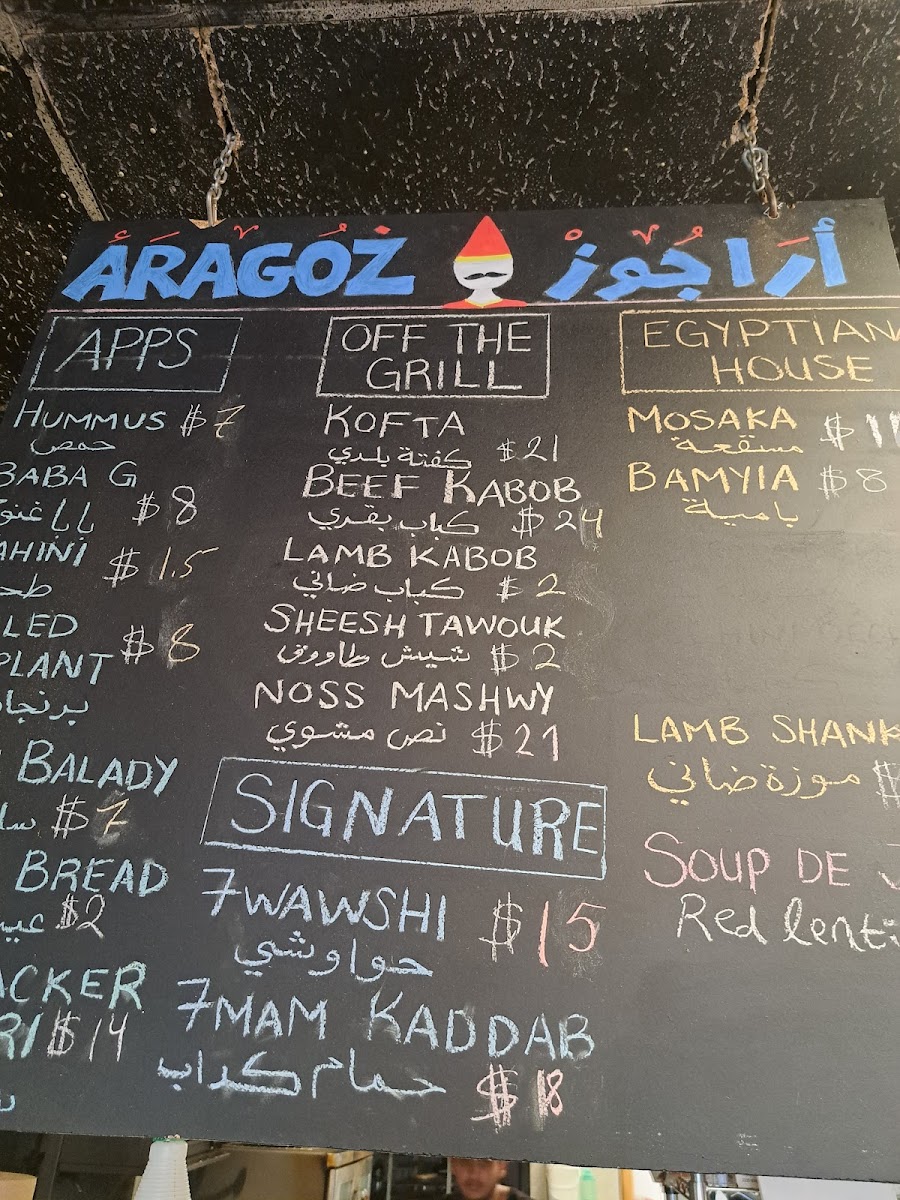 ARAGOZ أَرَاجُوزْ
APPS
HUMMUS $7
حمص
BABA G
بابا غنو $8
AHINI $1.5
طح
LED
PLANT $8
برنجا
BALADY
سل $7
BREAD
عي $2
ACKER
RI $14
OFF THE
GRILL
KOFTA
كفتة بلدي $21
BEEF KABOB
كباب بقري $24
LAMB KABOB
كباب ضاني $2
SHEESH TAWOUK
شيش طاووق $2
NOSS MASHWY
نص مشوي $21
SIGNATURE
7WAWSHI $15
حواوشي
7MAM KADDAB
حمام كداب $18
EGYPTIAN
HOUSE
MOSAKA $11
مسقعة
BAMYIA $8
بامية
LAMB SHANK
موزة ضاني $
SOUP DE J
Red lenti